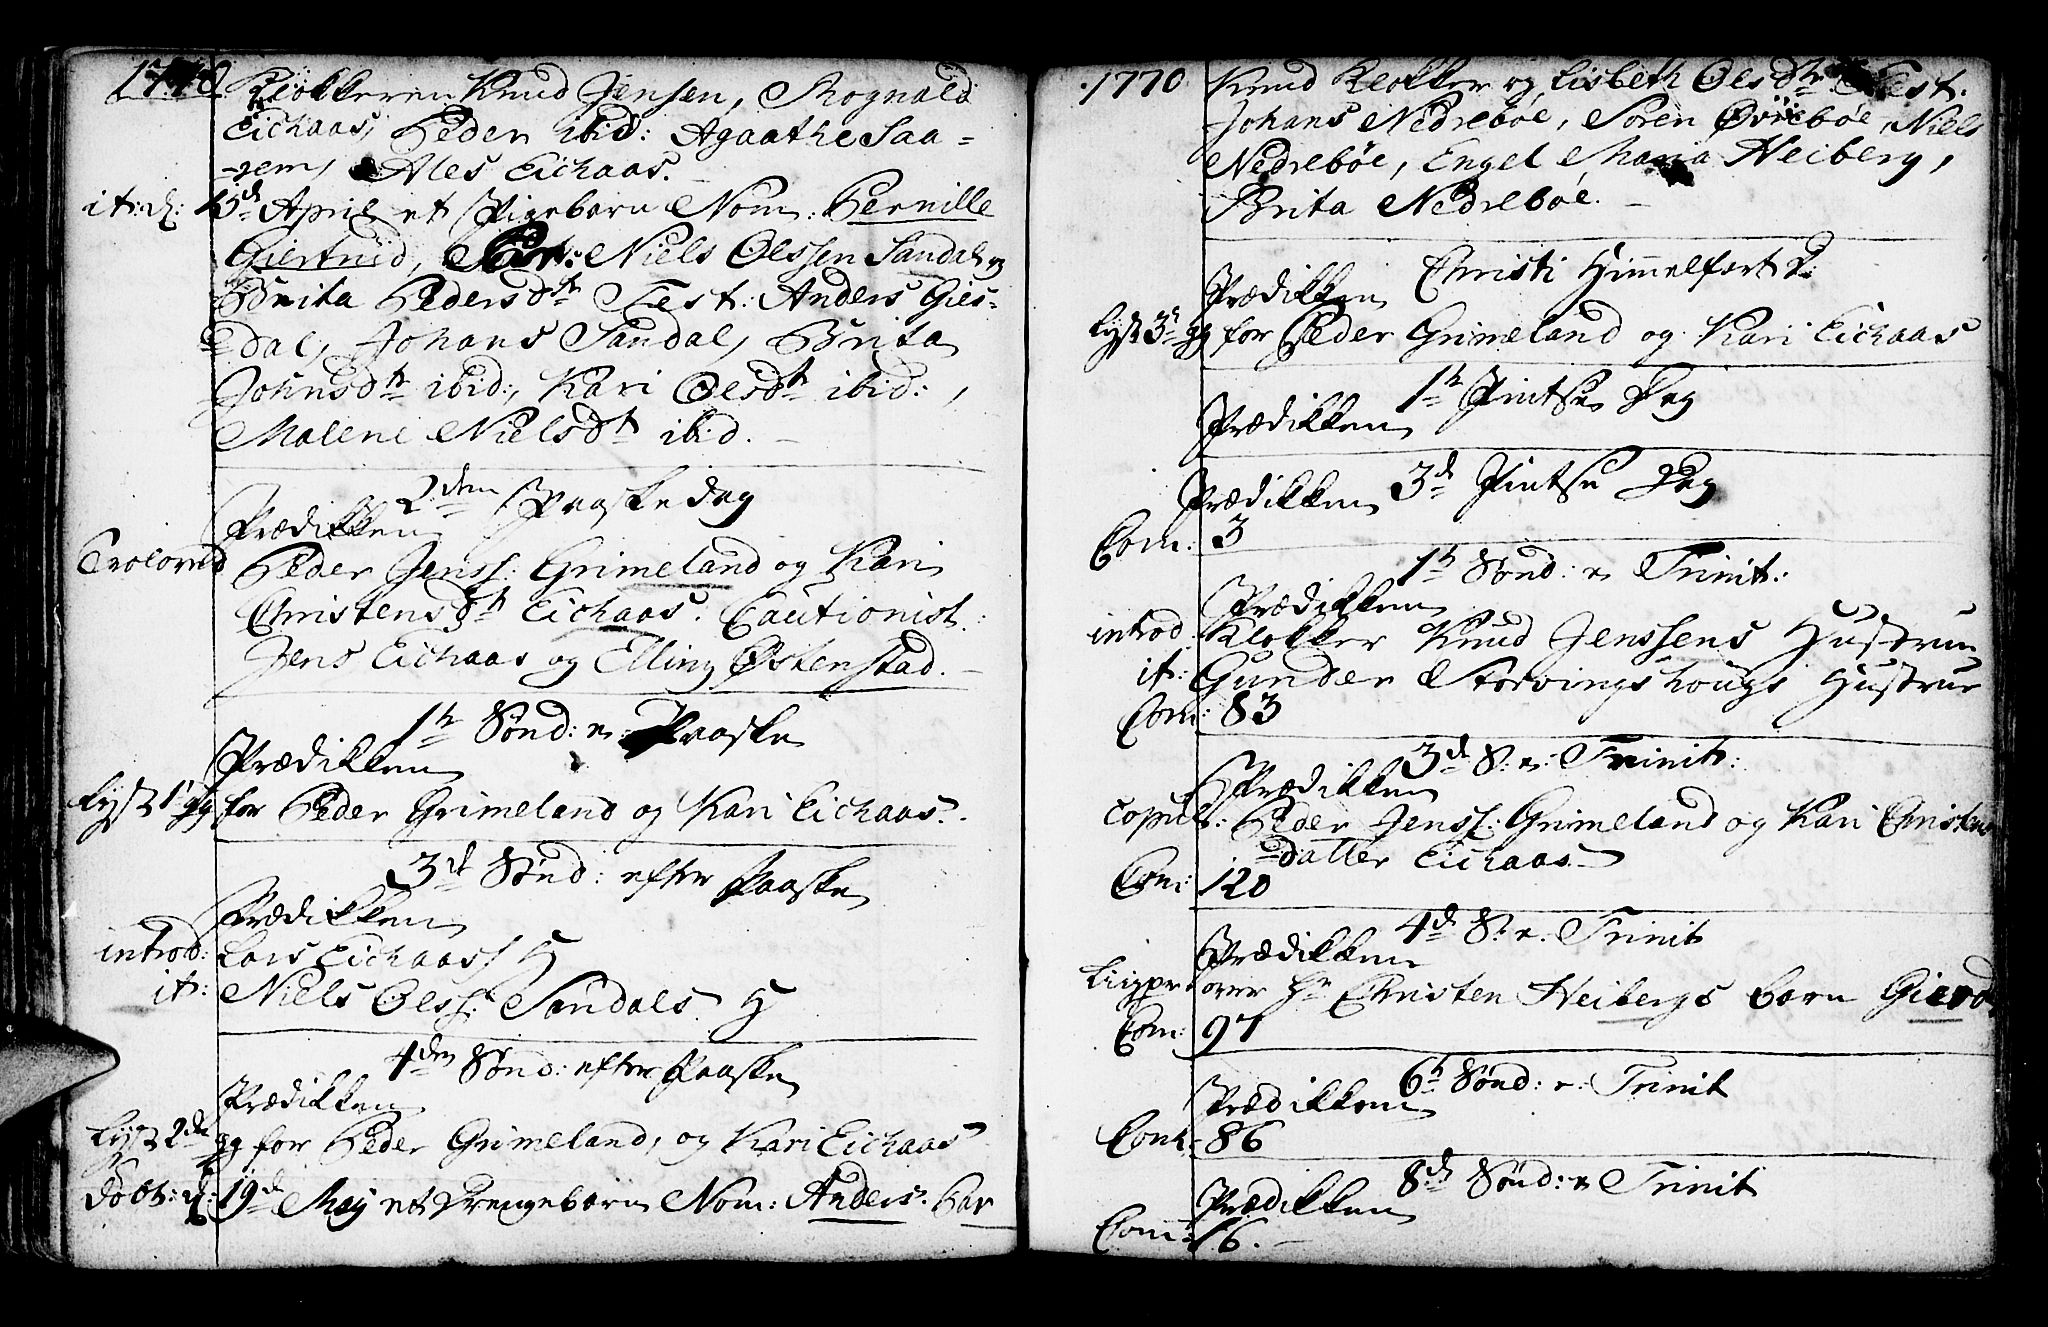 1770
Klokkeren Knud Jensen, Rognald
Eichaas, Peder ibid: Agaathe Saa-
-rem, Ales Eichaas.
it: d: 15d April et Pigebarn Nom: Pernille
Giertrud, Par: Niels Olssen Sandal og
Brita Pedersdtr Test: Anders Gies-
dal, Johans Sandal, Brita
Johnsdtr ibid:, Kari Olsdtr ibid:,
Malene Nielsdtr ibid. -
2den Paaskedag
Prædikken
Troloved Peder Jenss: Grimeland og Kari
Christensdtr Eichaas. Cautionist:
Jens Eichaas og Elling Østenstad. -
1te Sønd: e: Paaske
Prædikken
Lyst 1te gg for Peder Grimeland og Kari Eichaas.
3d Sønd: efter Paaske
Prædikken
introd: Lars Eichaas's H
it: Niels Olss: Sandals H
4den Sønd: efter Paaske
Prædikken
Lyst 2de gg for Peder Grimeland, og Kari Eichaas
Døbt: d: 19d Maj et Drengebarn Nom: Anders. Par
1770
Knud Klokker og Lisbeth Olsdtr Test.
Johans Nedrebøe, Søren Øvrebøe, Niels
Nedrebøe, Engel Maria Heiberg,
Brita Nedrebøe. -
Christi Himmelfart D:
Prædikken
Lyst 3de gg for Peder Grimeland og Kari Eichaas
1te Pintse Dag
Prædikken
3d Pintse Dag
Prædikken
Com: 3
1te Sønd: e Trinit:
Prædikken
introd. Klokker Knud Jenssens Hustrue
it: Gunder Storvingshougs Hustrue
Com: 83
3d S: e: Trinit:
Prædikken
copul: Peder Jenss: Grimeland og Kari Christens
datter Eichaas -
Com: 120
4d S. e. Trinit
Prædikken
Ligpr: over Hr Christen Heibergs barn Gierd
Com: 97
6te Sønd: e: Trinit
Prædikken
Com: 86
8de Sønd: e Trinit
Prædikken
Com: 16. -